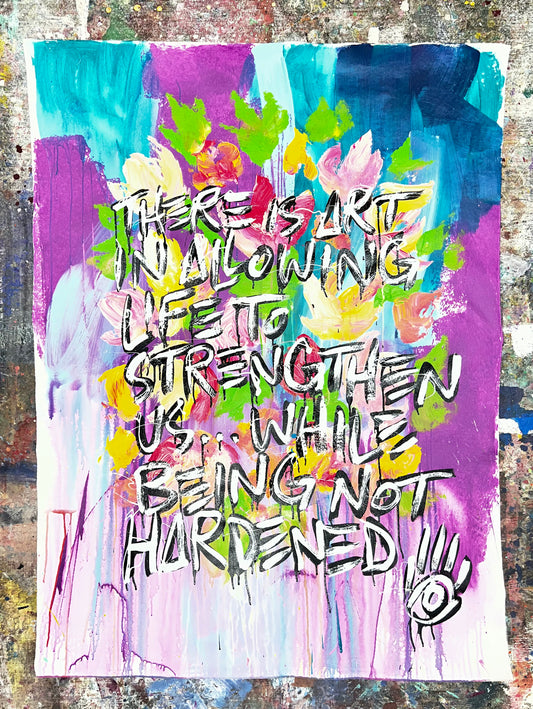 THERE IS ART
IN ALLOWING
LIFE TO
STRENGTHEN
US... WHILE
BEING NOT
HARDENED